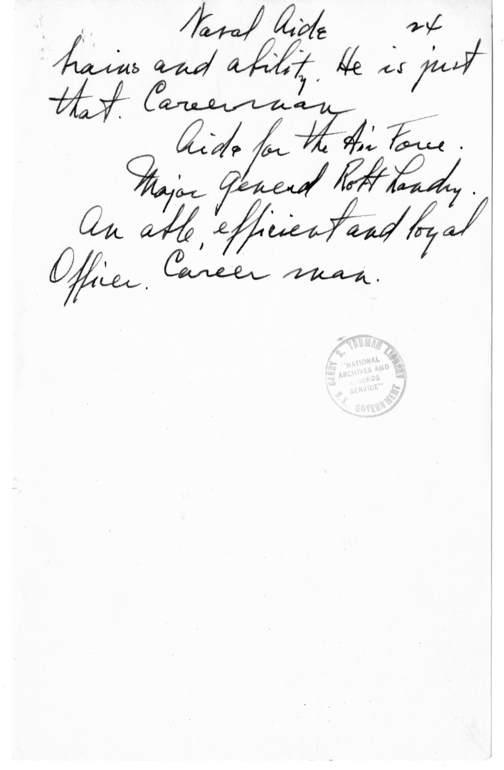 Naval Aide 24
brains and ability. He is just
that. Career man
Aide for the Air Force.
Major General Robt Landry.
An able, efficient and loyal
Officer. Career man.
HARRY S. TRUMAN LIBRARY
"NATIONAL
ARCHIVES AND
RECORDS
SERVICE"
U.S. GOVERNMENT